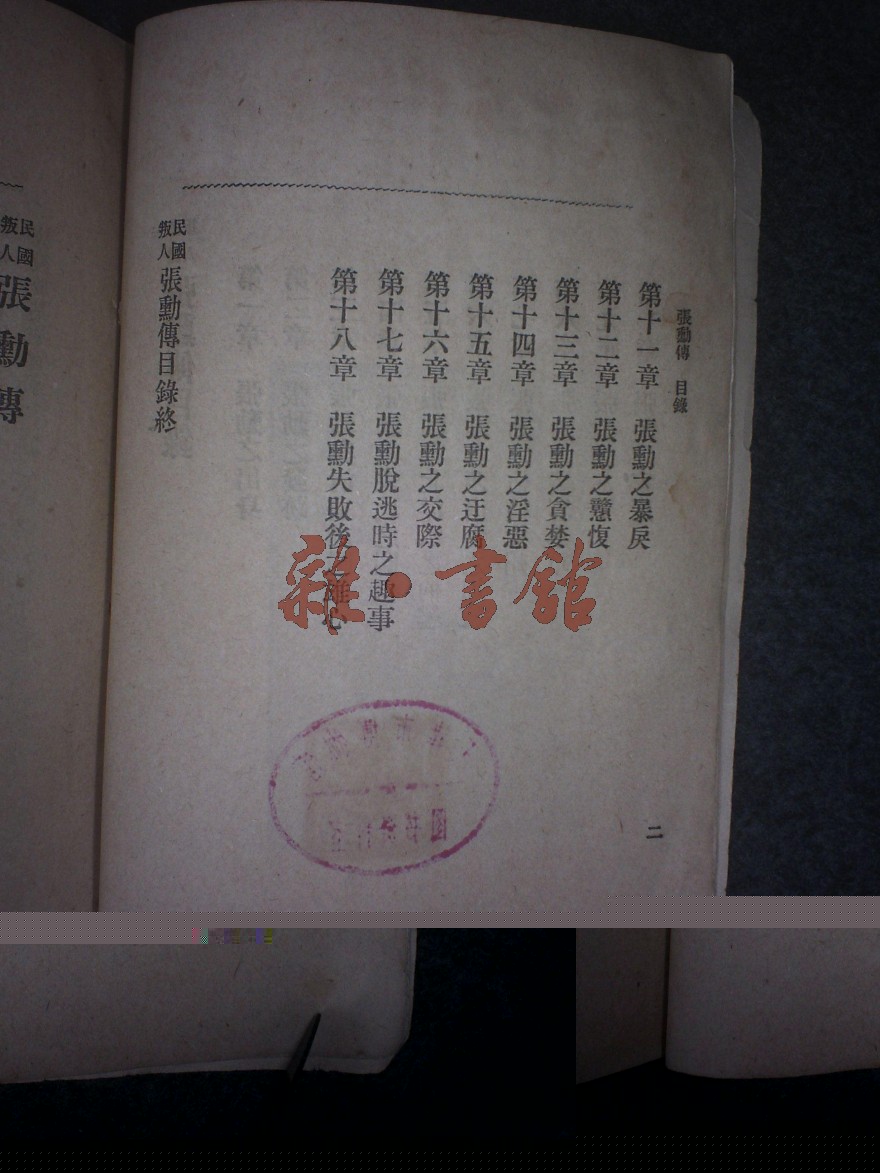 張勳傳 目錄
第十一章 張勳之暴戾
第十二章 張勳之戇愎
第十三章 張勳之貪婪
第十四章 張勳之淫惡
第十五章 張勳之迂腐
第十六章 張勳之交際
第十七章 張勳脫逃時之趣事
第十八章 張勳失敗後之雄心
民國叛人 張勳傳目錄終
二
民國叛人 張勳傳
雜·書館